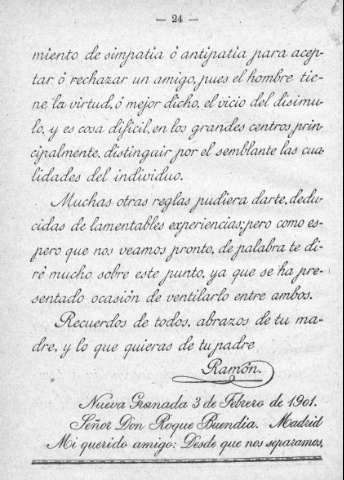 — 24 —
miento de simpatía ó antipatía para acep-
tar ó rechazar un amigo, pues el hombre tie-
ne la virtud, ó mejor dicho, el vicio del disimu-
lo, y es cosa difícil, en los grandes centros prin-
cipalmente, distinguir por el semblante las cua-
lidades del individuo.
Muchas otras reglas pudiera darte, dedu-
cidas de lamentables experiencias; pero como es-
pero que nos veamos pronto, de palabra te di-
ré mucho sobre este punto, ya que se ha pre-
sentado ocasión de ventilarlo entre ambos.
Recuerdos de todos, abrazos de tu ma-
dre, y lo que quieras de tu padre
Ramón.
Nueva Granada 3 de Febrero de 1901.
Señor Don Roque Buendia. Madrid
Mi querido amigo: Desde que nos separamos,